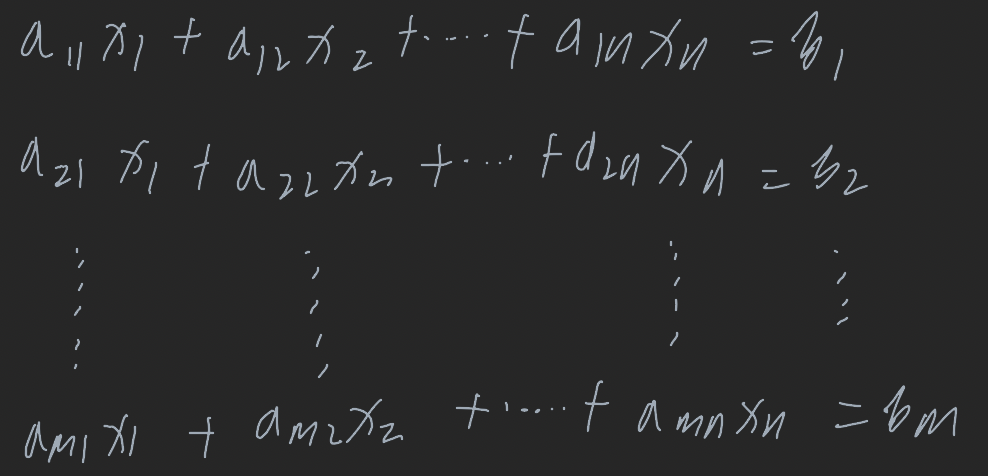 a₁₁x₁ + a₁₂x₂ + ····· + a₁ₙxₙ = b₁
a₂₁x₁ + a₂₂x₂ + ····· + a₂ₙxₙ = b₂
⋮ ⋮ ⋮ ⋮
aₘ₁x₁ + aₘ₂x₂ + ····· + aₘₙxₙ = bₘ